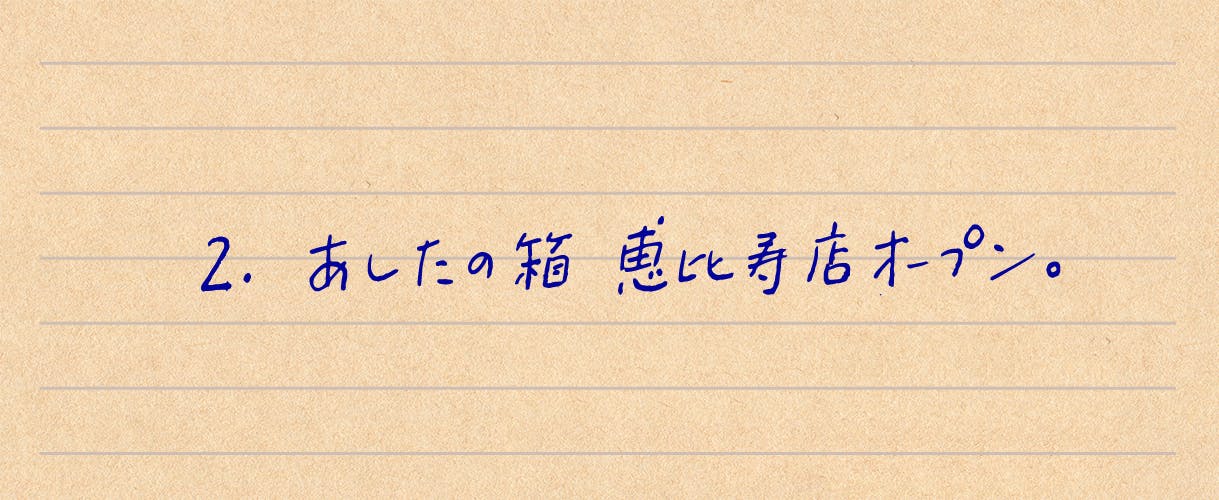 2. あしたの箱 恵比寿店オープン。